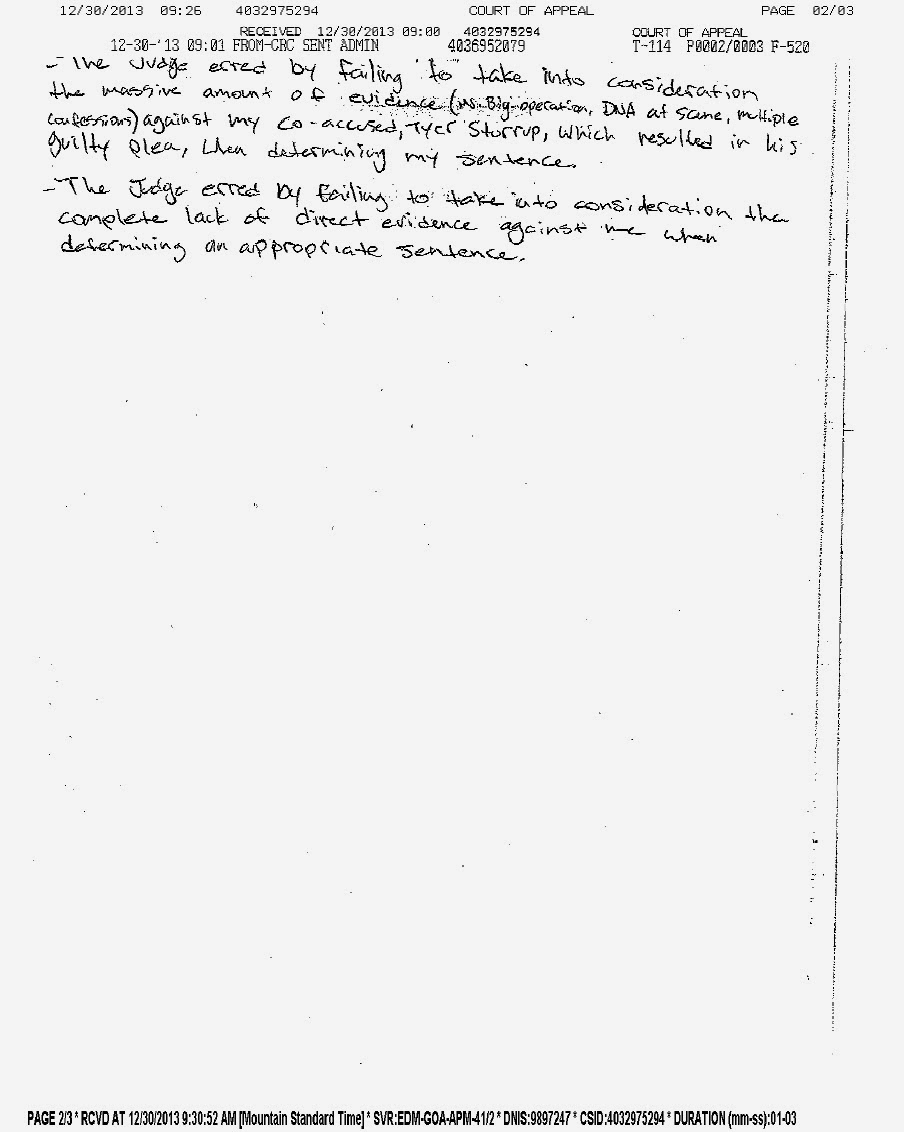 12/30/2013 09:26 4032975294 COURT OF APPEAL PAGE 02/03
RECEIVED 12/30/2013 09:00 4032975294 COURT OF APPEAL
12-30-'13 09:01 FROM-CRC SENT ADMIN 4036952079 T-114 P0002/0003 F-520
- The Judge erred by failing to take into consideration
the massive amount of evidence (Mr. Big operation, DNA at scene, multiple
confessions) against my co-accused, Tyer Sturrup, which resulted in his
guilty plea, when determining my sentence.
- The Judge erred by failing to take into consideration the
complete lack of direct evidence against me when
determining an appropriate sentence.
PAGE 2/3 * RCVD AT 12/30/2013 9:30:52 AM [Mountain Standard Time] * SVR:EDM-GOA-APM-41/2 * DNIS:9897247 * CSID:4032975294 * DURATION (mm-ss):01-03